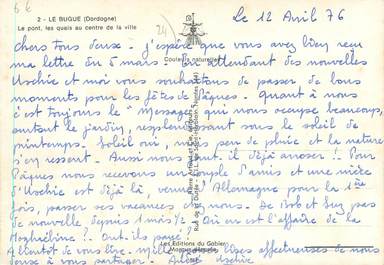 2 - LE BUGUE (Dordogne)
Le pont, les quais au centre de la ville
Le 12 Avril 76
chers tous deux. j'espère que vous avez bien reçu
ma lettre du 5 mars. En attendant des nouvelles
Uschie et moi vous souhaitons de passer de bons
moments pour les fêtes de Pâques. Quant à nous
c'est toujours le "Message" qui nous occupe beaucoup,
surtout le jardin, resplendissant sous le soleil de
printemps. Soleil oui, mais peu de pluie et la nature
s'en ressent. Aussi nous faut il déjà arroser !! Pour
Pâques nous recevons un couple d'amis et une nièce
d'Uschie est déjà là, venue d'Allemagne pour la 1ère
fois, passer ses vacances chez nous. De Bob et Guy pas
de nouvelle depuis 1 mois ½ Où en est l'affaire de la
Maghrébine ?. Ont-ils payé ?
A bientôt de vous lire. Mille bises affectueuses de nous
deux à vous partager. Uschie
Couleurs naturelles
Les Editions du Gabier